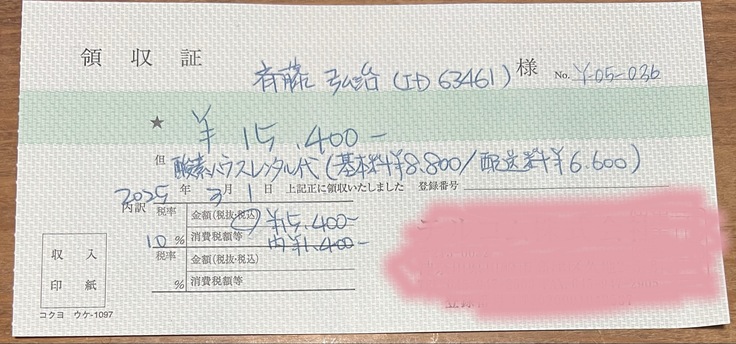 領収証
斉藤 弘治 (ID 63461) 様 No. Y-05-036
★ ¥15,400-
但 酸素ハウスレンタル代(基本料¥8,800/配送料¥6,600)
2025年3月1日 上記正に領収いたしました 登録番号
内訳 税率 金額(税抜・税込) ¥15,400-
10% 消費税額等 内¥1,400-
税率 金額(税抜・税込)
% 消費税額等
収入
印紙
コクヨ ウケ-1097